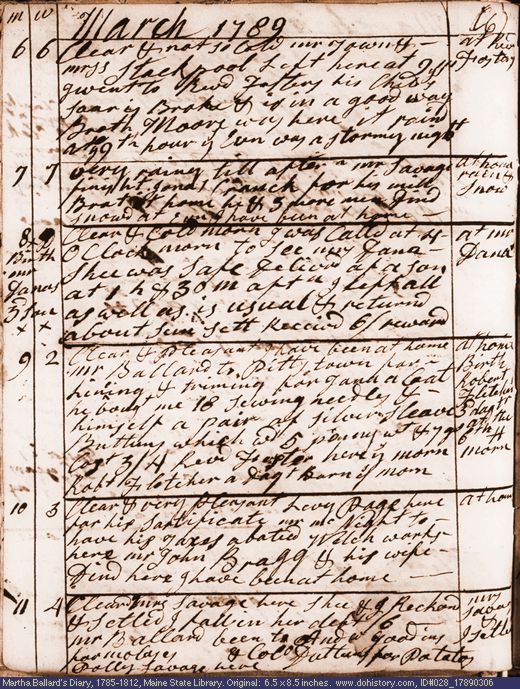 m w March 1789 (6)
6 6 Clear & not so Cold mr Town &
mrss Stackpool Sleept here at 9 I
went to Revd Fosters his Child
Soar is Broke & is in a good way
Broth Moore was here it raind
at 9th hour of Evn was a stormy night
at Revd
Fosters
7 7 very rainy till after n mr Savage
finisht Jonas Cranck for his mill
Brot at home he & 3 more men Dind
snowd at Evn I have been at home
at home
rain &
snow
8 Clear & Cold morn I was Calld at 4
O Clock morn to See mrs Dana
Shee was Safe Delivrd of a son
at 1 h & 30 m aftn I Left all
as well as is usual & returnd
about sun sett Receivd 6/ reward
Birth
mr
Danas
3 Son
x x
at mr
Dana
9 2 Clear & pleasant I have been at home
mr Ballard to Pittstown for
lining & triming for Jonath a Coat
he bot me 18 sewing needles &
himself a pair of silver Sleave
Buttons which wd 5 pening wt & 7 gr
Cost 3/4 Revd Foster here morn
Robt Fletcher a Dagt Born 6 morn
at home
Birth
Robert
Fletcher
3 dagt
9th
6 h
morn
10 3 Clear & very pleasant Levy Page here
for his Sartificate mr mcKnight to
have his Taxes abated Welch works
here mr John Bragg & his wife
Dind here I have been at home
at home
11 4 Clear mrs Savage here Shee & I Reckond
& Setled I fall in her dept 6
mr Ballard been to Andw Goodins
for molases & Colo Duttuns for Potatoes
Polly Savage here
mrs
Savag
I Setld
Martha Ballard's Diary, 1785-1812, Maine State Library. Original: 6.5 x 8.5 inches. www.dohistory.com, ID#028_17890306